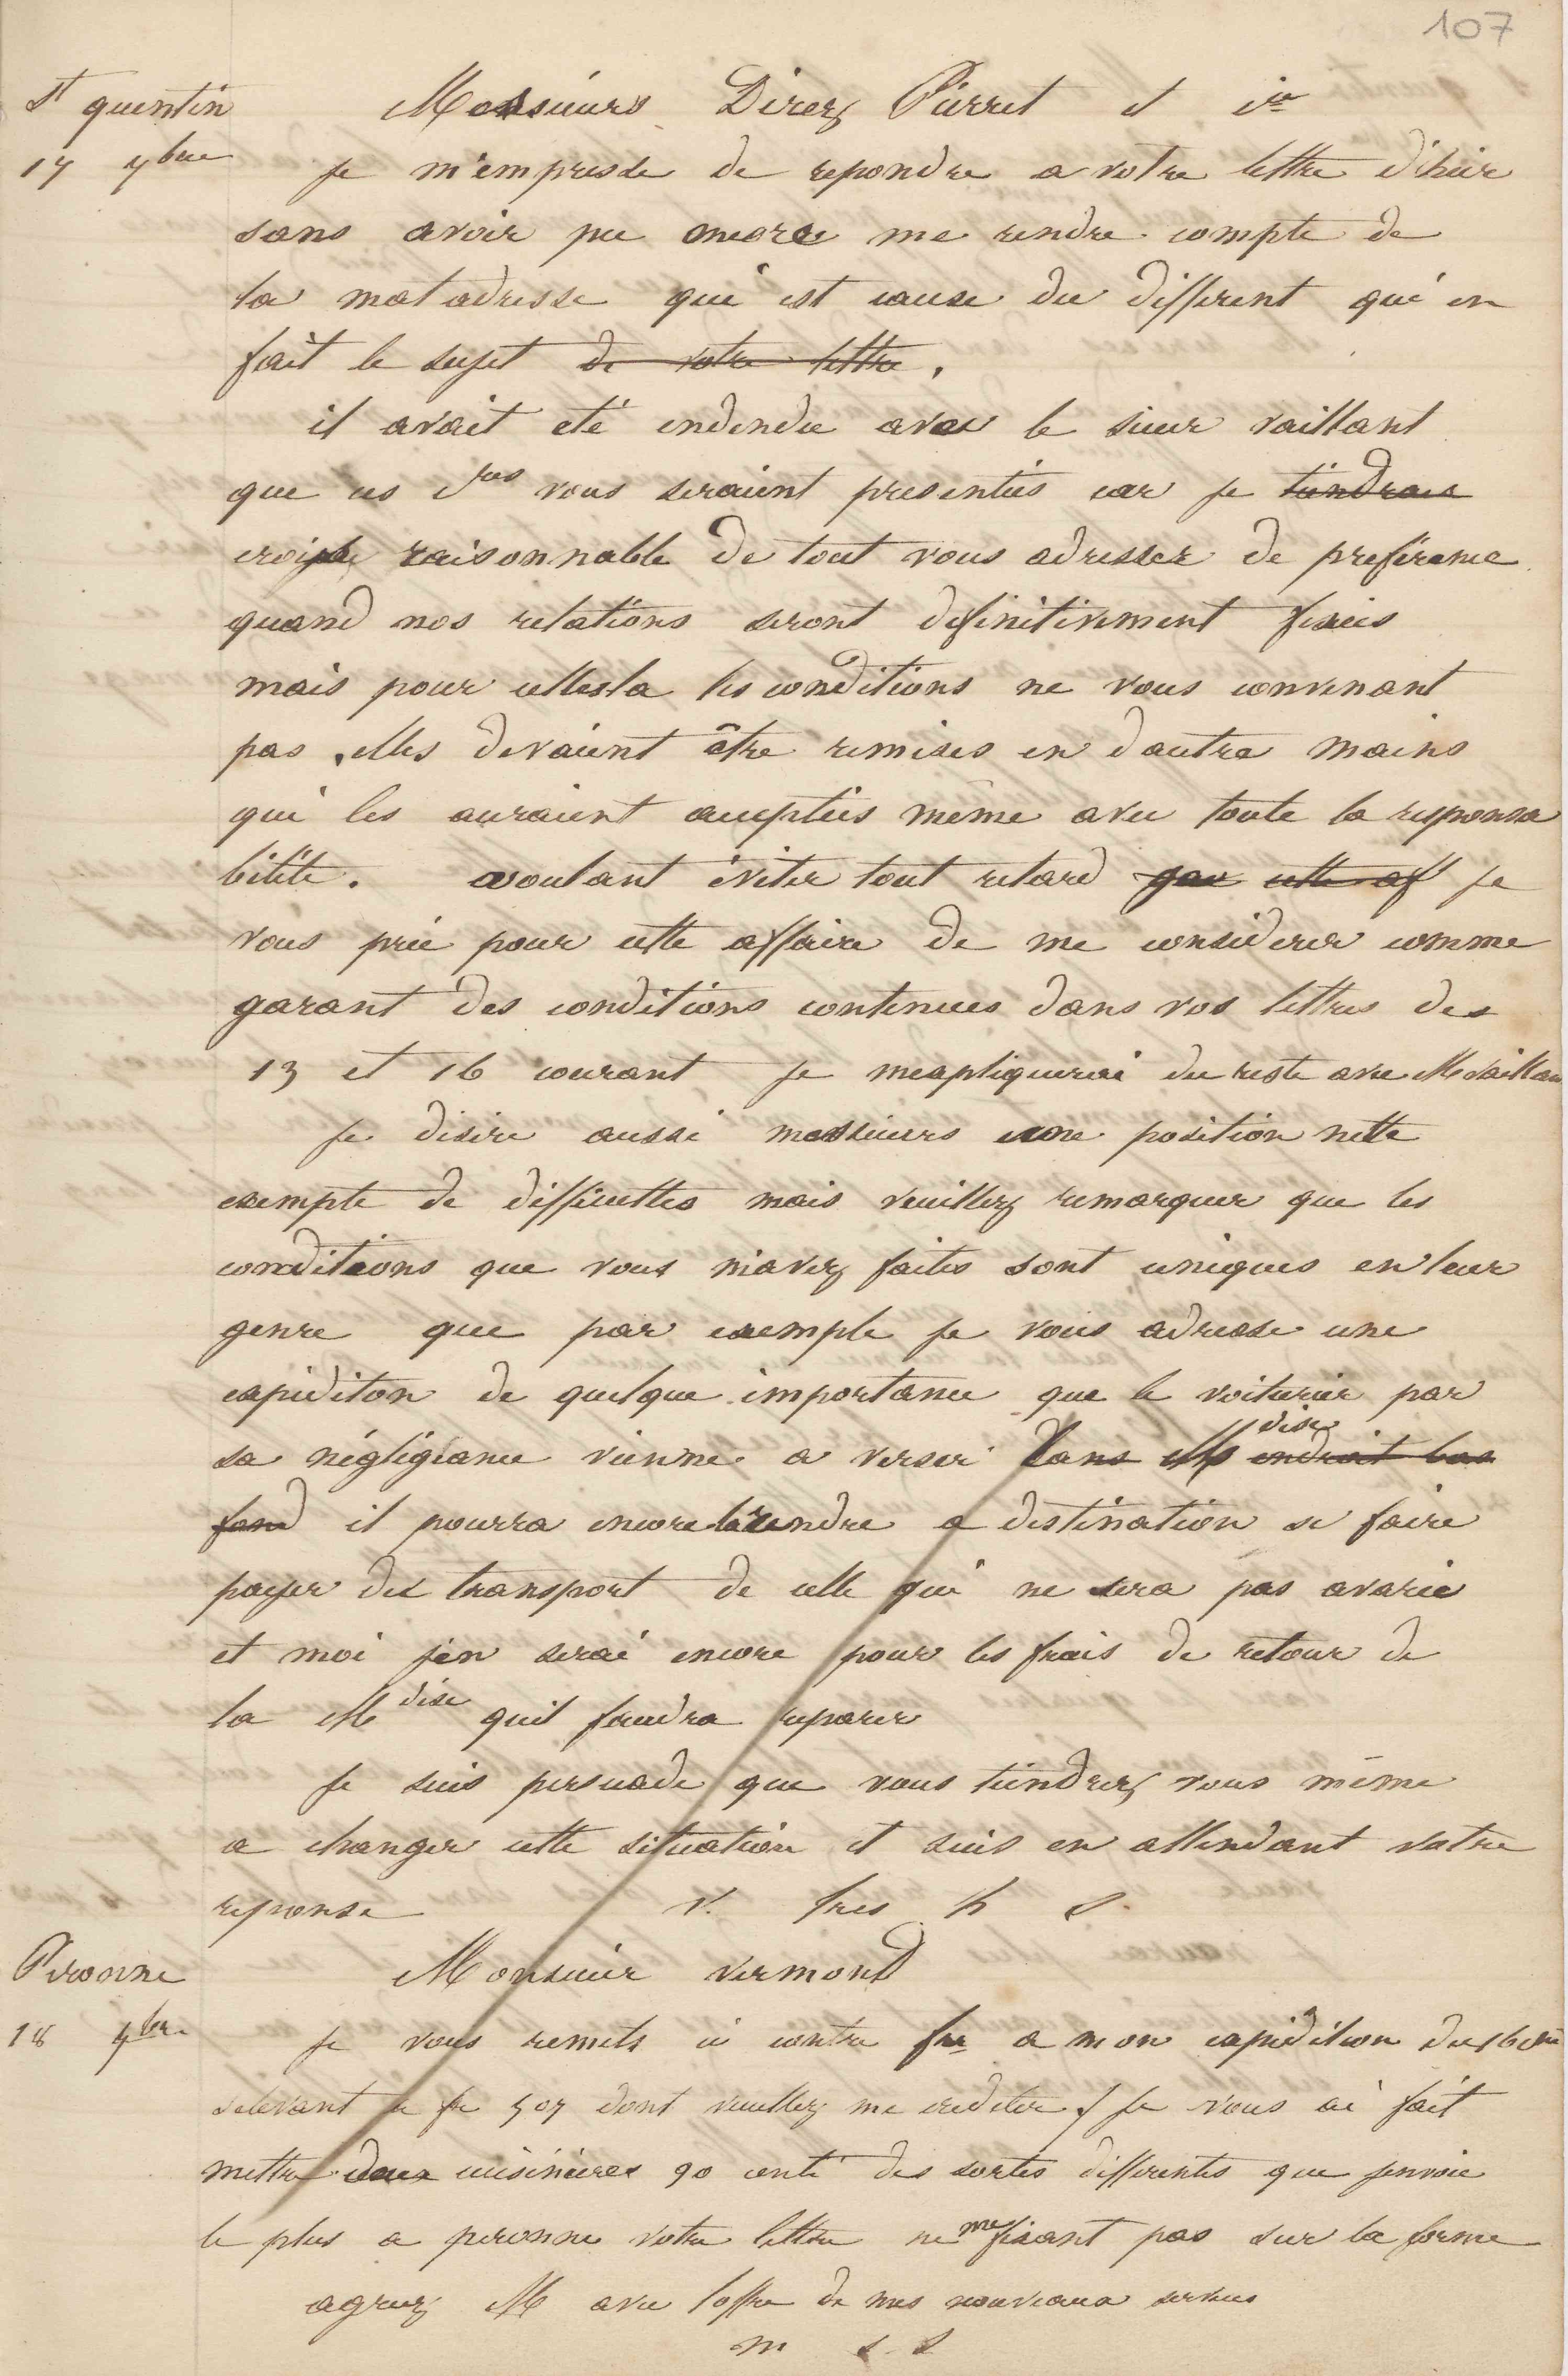 107
St quentin Messieurs Direz Pierret et Cie
17 9bre je m'empresse de repondre a votre lettre d'hier
sans avoir pu encore me rendre compte de
la mal adresse qui est cause du différent qui en
fait le sujet de votre lettre.
il avait eté endendu avec le sieur vaillant
que ces dres vous seraient presentées car je tiendrais
crois raisonnable de tout vous adresser de preference
quand nos relations seront definitivement fixées
mais pour celles la les conditions ne vous convenant
pas, elles devaient être remises en dautre mains
qui les auraient acceptées même avec toute la responsa
bilité. voulant éviter tout retard pour cette aff je
vous prie pour cette affaire de me considerer comme
garant des conditions contenues dans vos lettres des
13 et 16 courant je mexpliquerai du reste avec M vaillant
je désire aussi messieurs une position nette
exempte de difficultes mais veuillez remarquer que les
conditions que vous m'avez faites sont uniques en leur
genre que par exemple je vous adresse une
expéditon de quelque importance que le voiturier par
sa négligeance vienne a verser dans Mdise endroit bas
fond il pourra encore la rendre a destination se faire
payer des transport de celle qui ne sera pas avarié
et moi jen serai encore pour les frais de retour de
la Mdise quil faudra reparer
Je suis persuadé que vous tiendrez vous même
a changer cette situation et suis en attendant votre
reponse v. tres h S.
Peronne Monsieur vermond
18 9bre je vous remets ci contre fre a mon expédition du 16 ct
selevant a fr 507 dont veuillez me crediter. Je vous ai fait
mettre deux cuisinieres 90 cent des sortes differentes que jenvoie
le plus a peronne votre lettre ne me fixant pas sur la forme
agreez M avec loffre de mes nouveaux services
m s. s